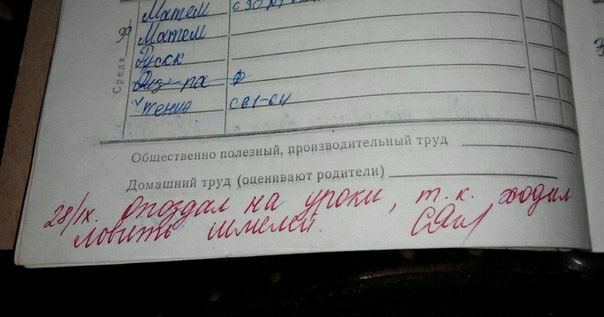 Матем
30
Матем
Среда
Русск
Физ-ра ф
Чтение с 61-64
Общественно полезный, производительный труд
Домашний труд (оценивают родители)
28/IX. Опоздал на уроки, т.к. ходил
ловить шмелей.